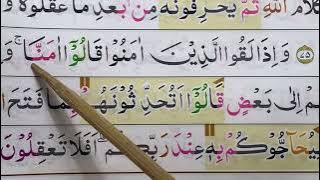 كَلَامَ اللّٰهِ ثُمَّ يُحَرِّفُوْنَهٗ مِنْۢ بَعْدِ مَا عَقَلُوْهُ وَ
﴿٧٥﴾ وَاِذَا لَقُوا الَّذِيْنَ اٰمَنُوْا قَالُوْۤا اٰمَنَّا ۖۚ وَ
هُمْ اِلٰى بَعْضٍ قَالُوْۤا اَتُحَدِّثُوْنَهُمْ بِمَا فَتَحَ ا
لِيُحَآجُّوْكُمْ بِهٖ عِنْدَ رَبِّكُمْ ؕ اَفَلَا تَعْقِلُوْنَ